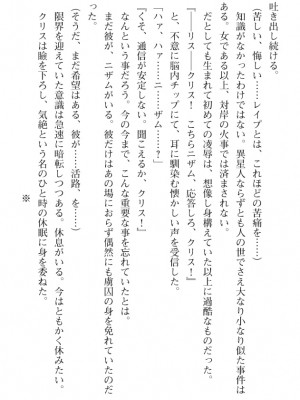 吐き出し続ける。
(苦しい……悔しい……レイプとは、これほどの苦痛を……)
知識がなかったわけではない。異星人ならずとも人の世でさえ大なり小なり似た事件は
ある。女である以上、対岸の火事では済まされない。
だとしても生まれて初めての凌辱は、想像し身構えていた以上に過酷なものだった。
『――リス――クリス！　こちらニザム、応答しろ、クリス！』
と、不意に脳内チップにて、耳に馴染む懐かしい声を受信した。
「ハァ、ハァ……ニ――ザム……？」
『くそ、通信が安定しない。聞こえるか、クリス！』
なんという事だろう。今の今まで、こんな重要な事を忘れていたとは。
まだ彼が、ニザムがいる。彼だけはあの場におらず偶然にも虜囚の身を免れていたのだ
った。
(そうだ、まだ希望はある、彼が……活路、を……)
限界を迎えていた意識は急速に暗転しつつある。休息がいる。今はともかく休みたい。
クリスは瞼を下ろし、気絶という名のひと時の休眠に身を委ねた。
※